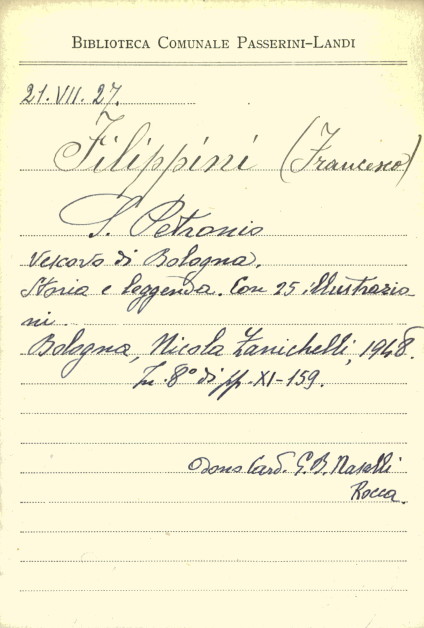 BIBLIOTECA COMUNALE PASSERINI-LANDI
21.VII.27.
Filippini (Francesco)
S. Petronio
Vescovo di Bologna.
Storia e leggenda. Con 25 illustrazio-
ni.
Bologna, Nicola Zanichelli, 1948.
In 8° di pp. XI-159.
Dono Card. G. B. Nasalli
Rocca.